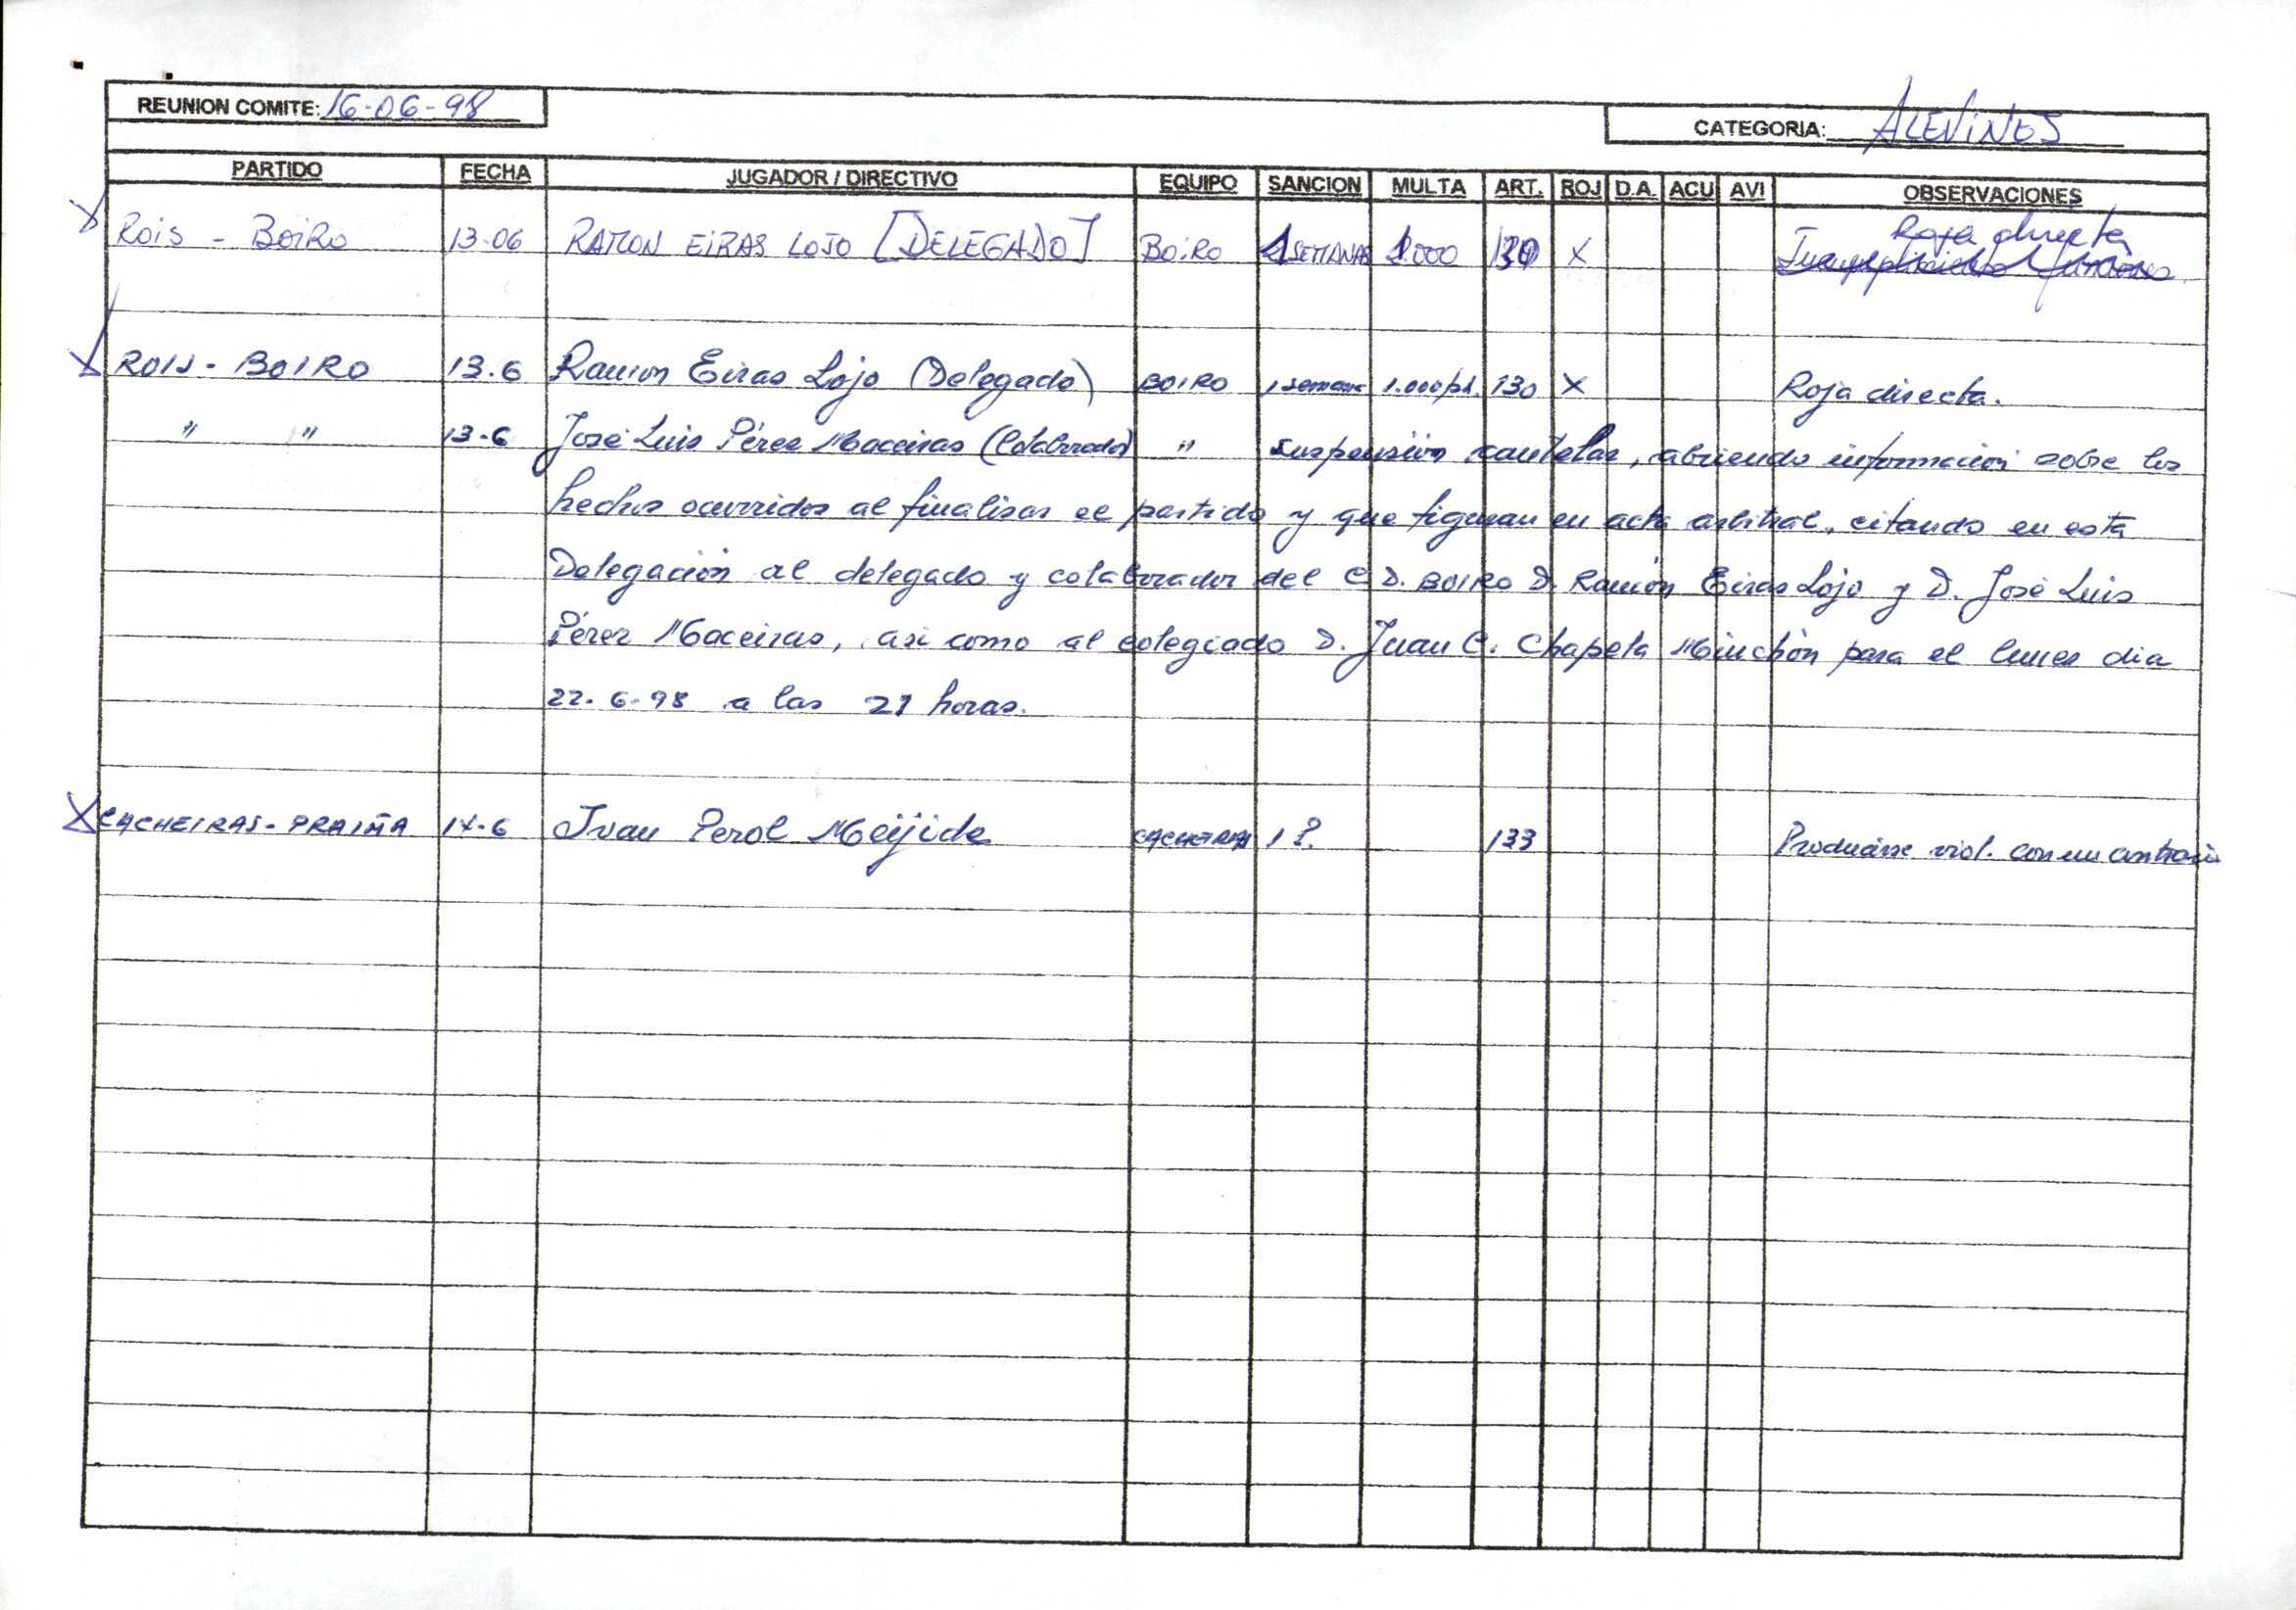 REUNION COMITE: 16-06-98
CATEGORIA: ALEVINES
PARTIDO FECHA JUGADOR / DIRECTIVO EQUIPO SANCION MULTA ART. ROJ D.A. ACU AVI OBSERVACIONES
Roja directa
ROIS - BOIRO 13-06 RAMON EIRAS LOJO [DELEGADO] BOIRO 1 SEMANAS 1.000 130 X
ROIS - BOIRO 13.6 Ramon Eiras Lojo (Delegado) BOIRO 1 semana 1.000 pts. 130 X Roja directa.
" " 13-6 José Luis Pérez Maceiras (Colaborador) " Suspensión cautelar, abriendo información sobre los
hechos ocurridos al finalizar el partido y que figuran en acta arbitral, citando en esta
Delegación al delegado y colaborador del C.D. BOIRO D. Ramón Eiras Lojo y D. José Luis
Pérez Maceiras, asi como al colegiado D. Juan C. Chapela Minchón para el lunes dia
22-6-98 a las 21 horas.
CACHEIRAS - PRAIÑA 14-6 Ivan Perol Meijide CACHEIRAS 1 P. 133 Producirse viol. con un contrario